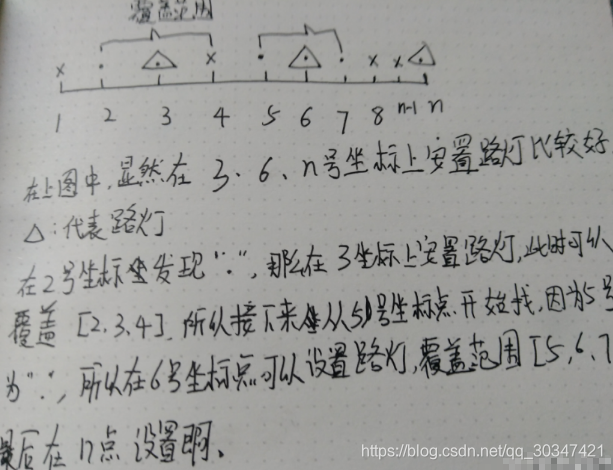 覆盖范围
1 2 3 4 5 6 7 8 n-1 n
在上图中,显然在 3、6、n号坐标上安置路灯比较好
△:代表路灯
在2号坐标发现".",那么在3坐标上安置路灯,此时可以
覆盖 [2.3.4]. 所以接下来从5号坐标点开始找,因为5号
为".",所以在6号坐标点可以设置路灯,覆盖范围[5,6,7
最后在n点设置啊、
https://blog.csdn.net/qq_30347421